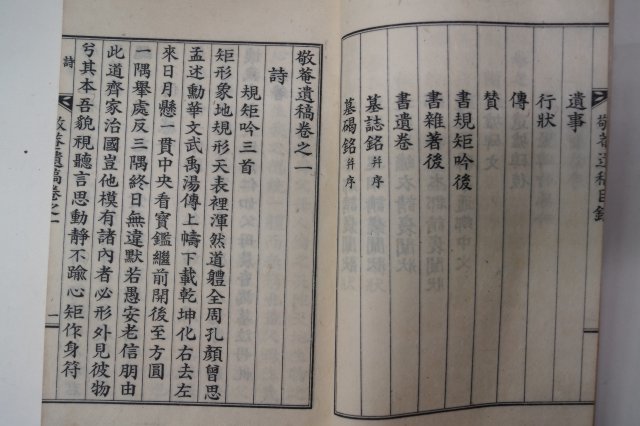 敬菴遺稿目錄
遺事
行狀
傳
贊
書規矩吟後
書雜著後
書遺卷
墓誌銘并序
墓碣銘并序
敬菴遺稿卷之一
詩
規矩吟三首
矩形象地規形天表裡渾然道體全周孔顏曾思
孟述勳華文武禹湯傳上幬下載乾坤化右去左
來日月懸一貫中央看寶鑑繼前開後至方圓
一隅擧處反三隅終日無違默若愚安老信朋由
此道齊家治國豈他模有諸內者必形外見彼物
兮其本吾貌視聽言思動靜不踰心矩作身符
詩
敬菴遺稿卷之一
一